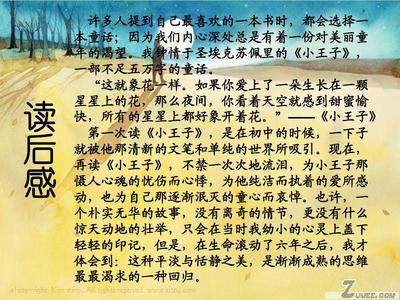 读后感
许多人提到自己最喜欢的一本书时，都会选择一
本童话；因为我们内心深处总是有着一份对美丽童
年的渴望。我钟情于圣埃克苏佩里的《小王子》，
一部不足五万字的童话。
“这就象花一样。如果你爱上了一朵生长在一颗
星星上的花，那么夜间，你看着天空就感到甜蜜愉
快，所有的星星上都好象开着花。”——《小王子》
第一次读《小王子》，是在初中的时候，一下子
就被他那清新的文笔和单纯的世界所吸引。现在，
再读《小王子》，不禁一次次地流泪，为小王子那
慑人心魂的忧伤而心悸，为他纯洁而执着的爱所感
动，也为自己那逐渐泯灭的童心而哀悼。也许，一
个朴实无华的故事，没有离奇的情节，更没有什么
惊天动地的壮举，只会在当时我幼小的心灵上盖下
轻轻的印记，但是，在生命滚动了六年之后，我才
体会到：这种平淡与恬静之美，是渐渐成熟的思维
最最渴求的一种回归。
ZUUEE.COM